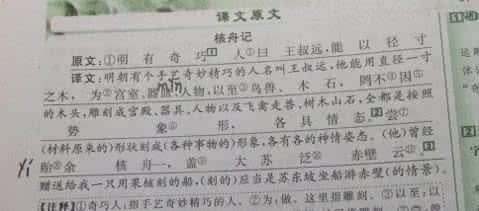 课文原文
核舟记
原文:①明 有 奇 巧[1] 人①曰 王叔远,能 以 径 寸
译文:明朝有个手艺奇妙精巧的人名叫王叔远,他能用直径一寸
之木, 为②宫室、器皿、人物,以至③鸟兽、 木 石, 罔不④因⑤
的木头,雕刻成宫殿、器具、人物以及飞禽走兽、树木山石,全都是按照
势 象⑥ 形, 各 具 情 态。[2]尝⑦
(材料原来的)形状刻成(各种事物的)形象,各有各的神情姿态。(他)曾经
贻⑧余 核 舟一, 盖⑨ 大 苏 泛⑩ 赤壁 云⑪。[3]
赠送给我一只用果核刻的船,(刻的)应当是苏东坡坐船游赤壁(的情景)。
【注释】①奇巧人:指手艺奇妙精巧的人。②为:做。这里指雕刻。③以至:以
min
yí